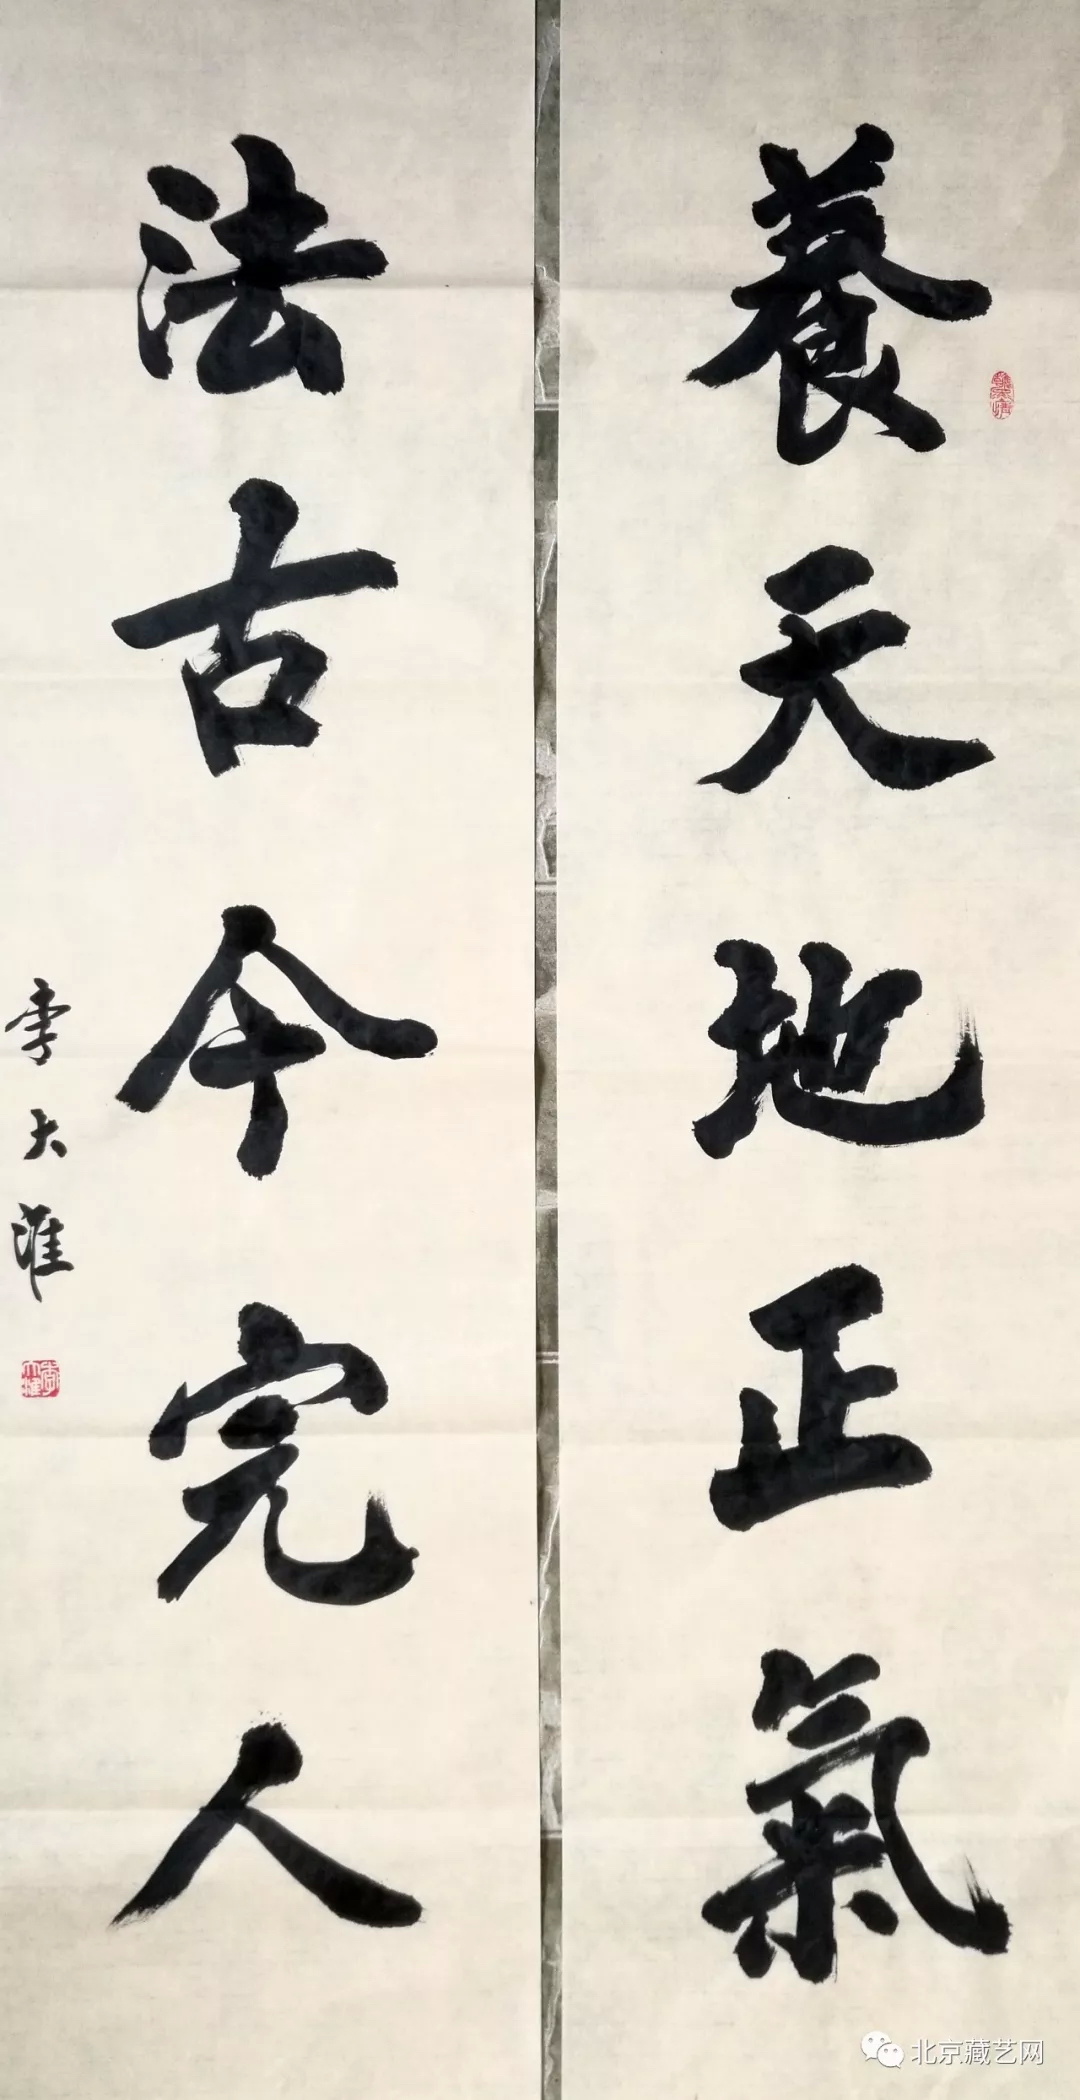 養天地正氣
法古今完人
季大淮
北京藏艺网